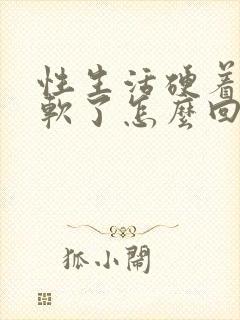 性生活硬着
軟了怎麼回
狐小鬧